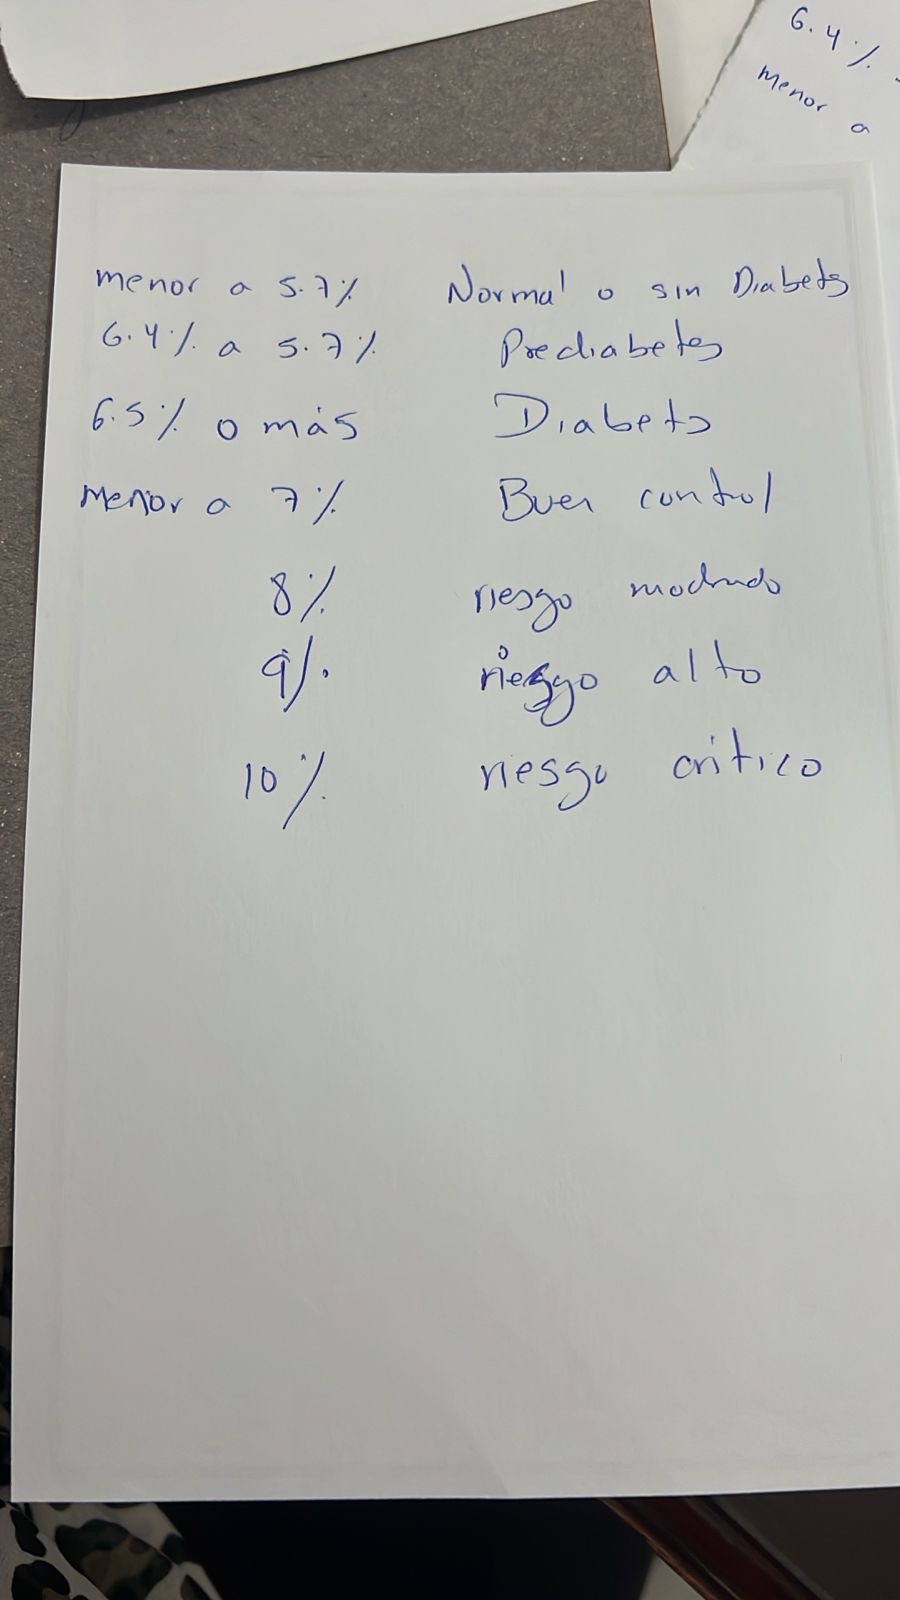 6.4%
menor a
menor a 5.7% Normal o sin Diabetes
6.4% a 5.7% Prediabetes
6.5% o más Diabetes
Menor a 7% Buen control
8% riesgo moderado
9% riesgo alto
10% riesgo critico